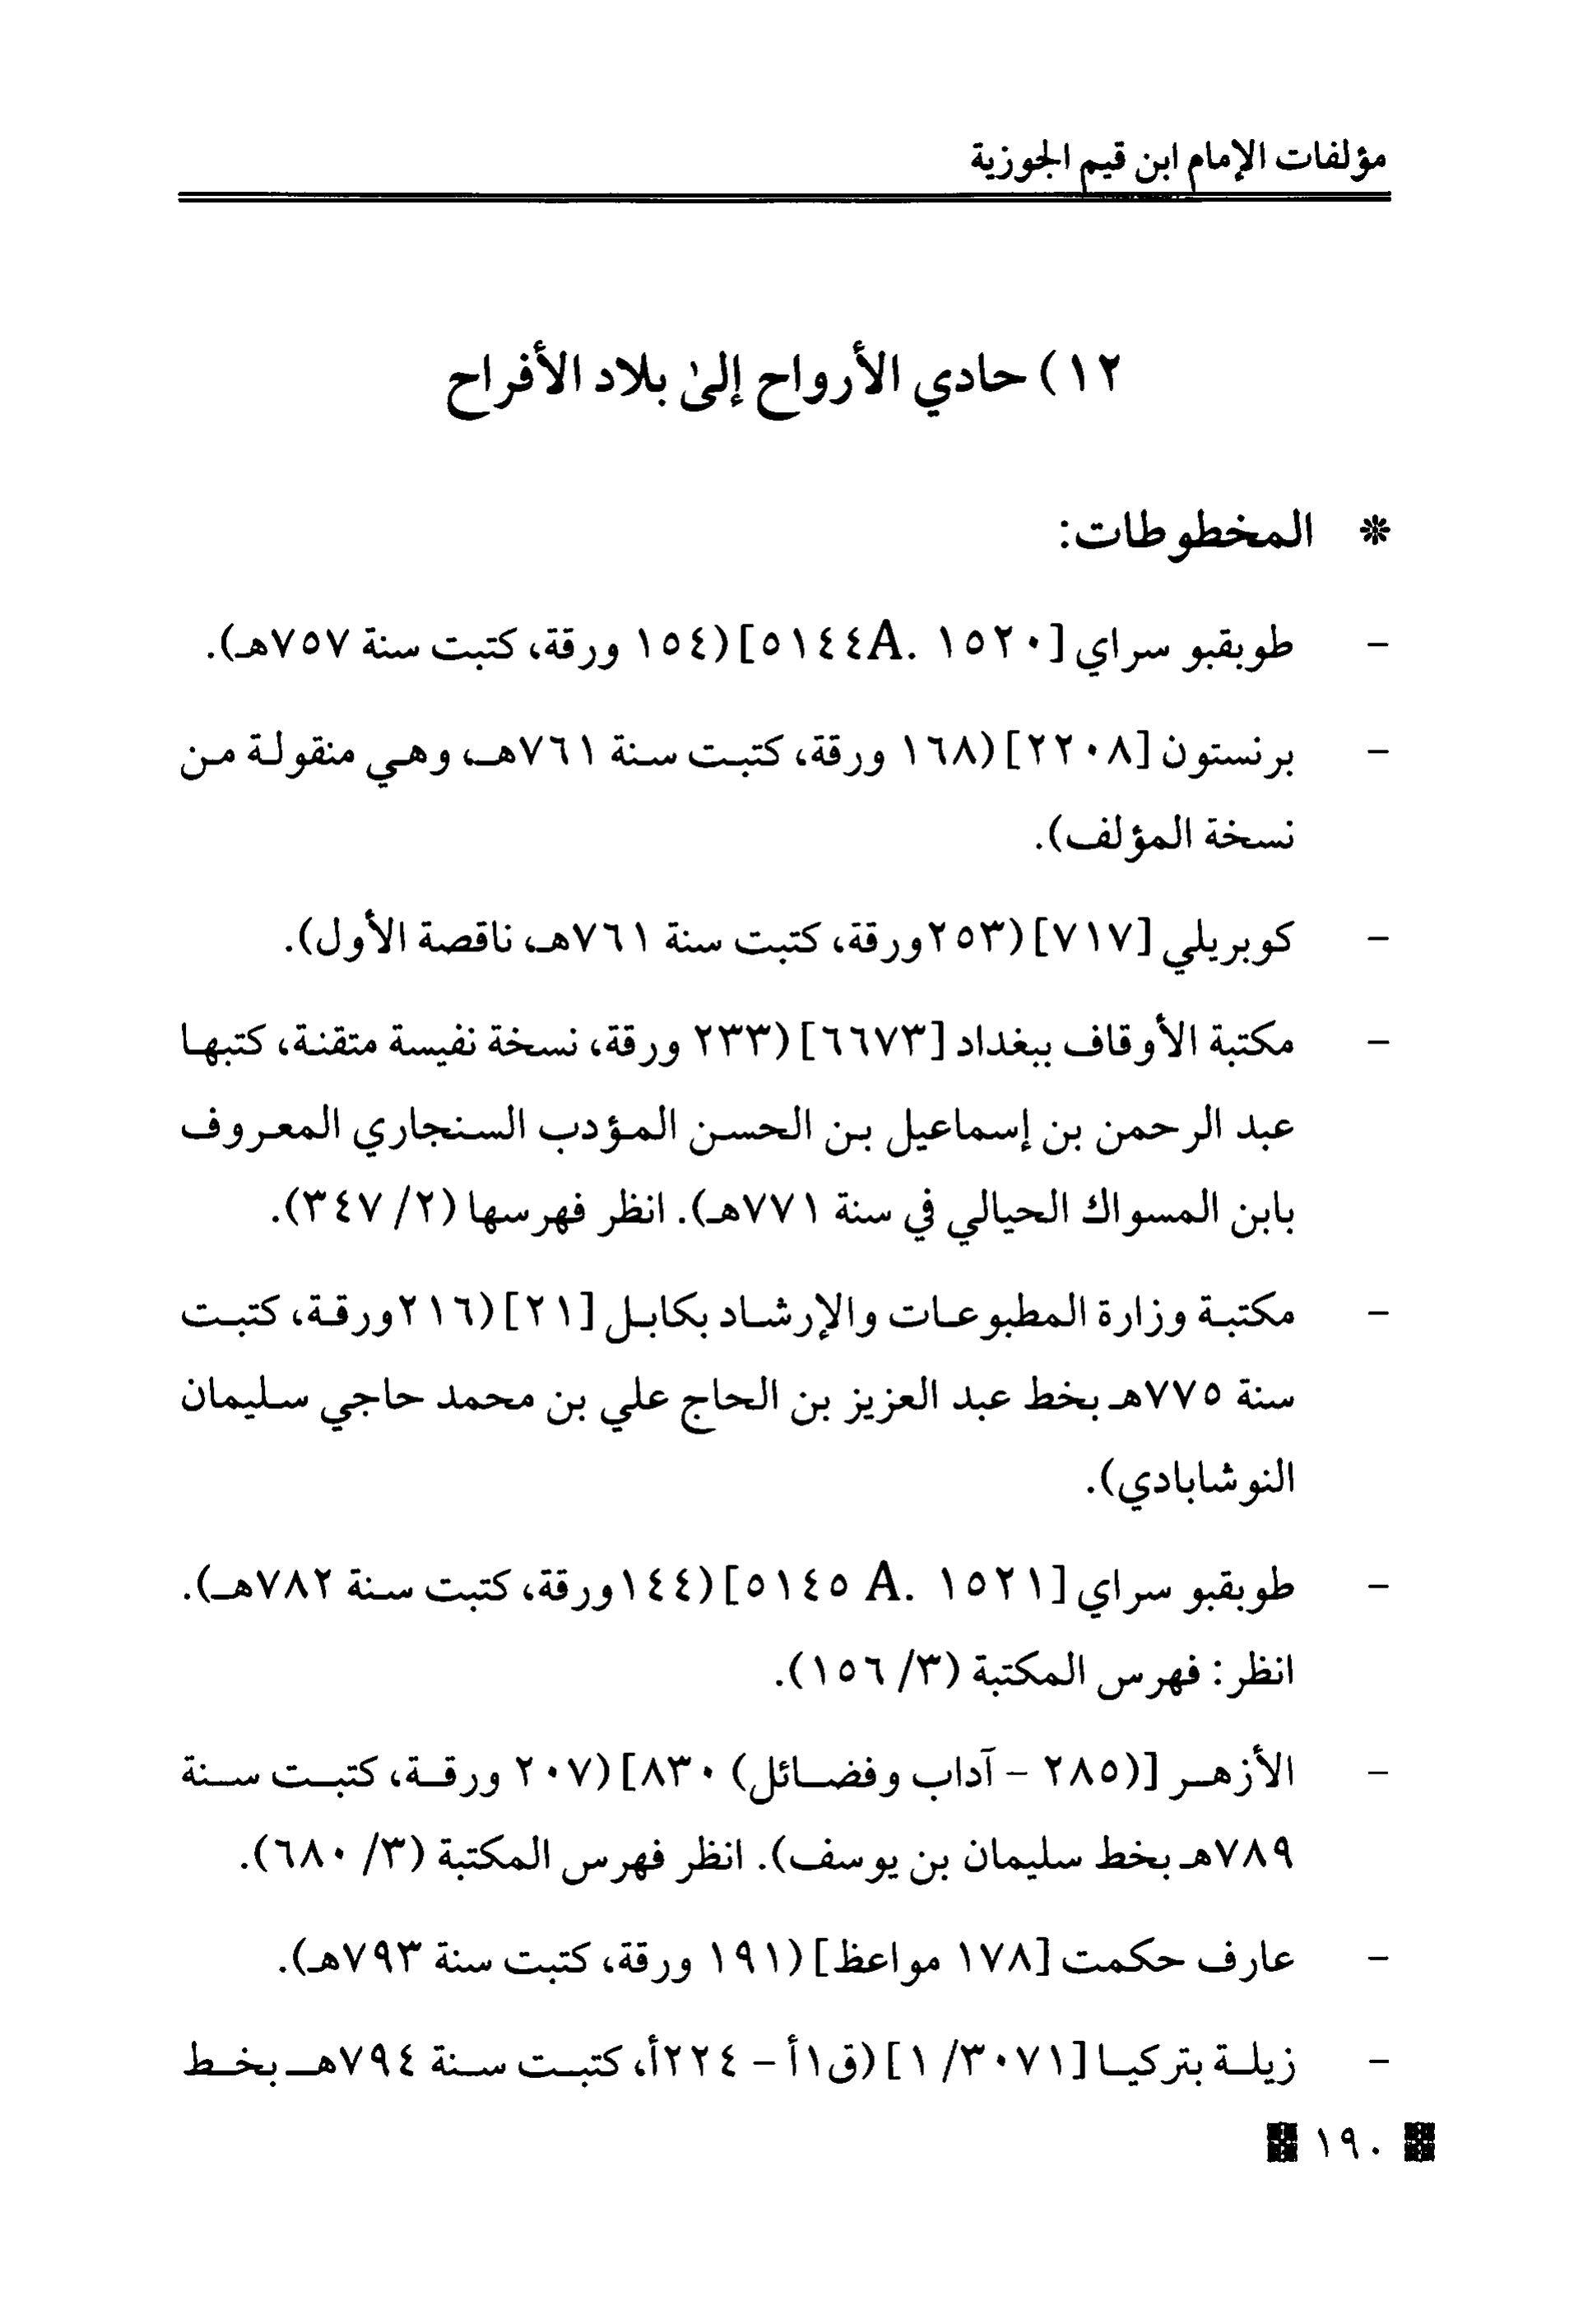 مؤلفات الإمام ابن قيم الجوزية
١٢) حادي الأرواح إلىٰ بلاد الأفراح
* المخطوطات:
- طوبقبو سراي [٥١٤٤A. ١٥٢٠] (١٥٤ ورقة، كتبت سنة ٧٥٧هـ).
- برنستون [٢٢٠٨] (١٦٨ ورقة، كتبت سنة ٧٦١هـ، وهي منقولة من
نسخة المؤلف).
- كوبريلي [٧١٧] (٢٥٣ورقة، كتبت سنة ٧٦١هـ، ناقصة الأول).
- مكتبة الأوقاف ببغداد [٦٦٧٣] (٢٣٣ ورقة، نسخة نفيسة متقنة، كتبها
عبد الرحمن بن إسماعيل بن الحسن المؤدب السنجاري المعروف
بابن المسواك الحيالي في سنة ٧٧١هـ). انظر فهرسها (٢/ ٣٤٧).
- مكتبة وزارة المطبوعات والإرشاد بكابل [٢١] (٢١٦ورقة، كتبت
سنة ٧٧٥هـ بخط عبد العزيز بن الحاج علي بن محمد حاجي سليمان
النوشابادي).
- طوبقبو سراي [٥١٤٥ A. ١٥٢١] (١٤٤ورقة، كتبت سنة ٧٨٢هـ).
انظر: فهرس المكتبة (٣/ ١٥٦).
- الأزهر [(٢٨٥ - آداب وفضائل) ٨٣٠] (٢٠٧ ورقة، كتبت سنة
٧٨٩هـ بخط سليمان بن يوسف). انظر فهرس المكتبة (٣/ ٦٨٠).
- عارف حكمت [١٧٨ مواعظ] (١٩١ ورقة، كتبت سنة ٧٩٣هـ).
- زيلة بتركيا [٣٠٧١/ ١] (ق١أ - ٢٢٤أ، كتبت سنة ٧٩٤هـ بخط
١٩٠